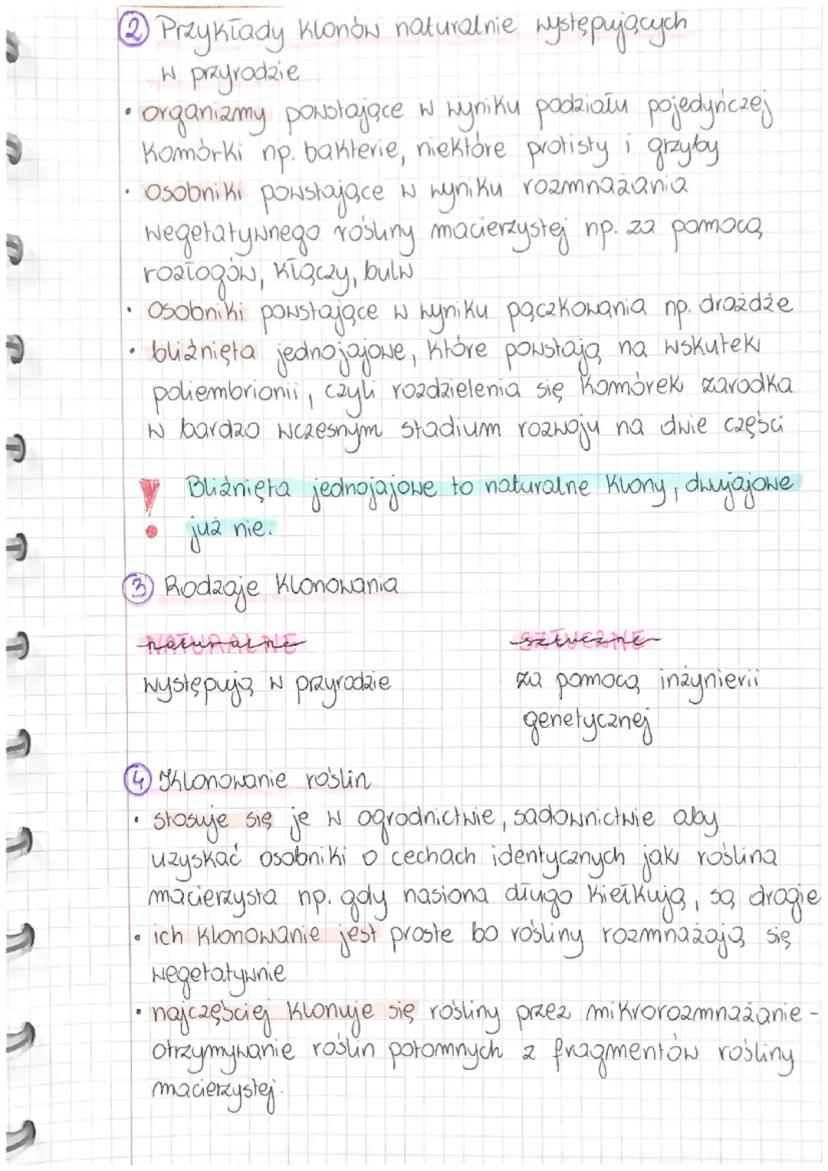 ② Przykłady klonów naturalnie występujących
w przyrodzie
• organizmy powstające w wyniku podziału pojedyńczej
komórki np. bakterie, niektóre protisty i grzyby
• osobniki powstające w wyniku rozmnażania
wegetatywnego rośliny macierzystej np. za pomocą
rozłogów, kłączy, bulw
• osobniki powstające w wyniku pączkowania np. drożdże
• bliźnięta jednojajowe, które powstają na wskutek
poliembrionii, czyli rozdzielenia się komórek zarodka
w bardzo wczesnym stadium rozwoju na dwie części
! Bliźnięta jednojajowe to naturalne klony, dwujajowe
już nie.
③ Rodzaje klonowania
NATURALNE SZTUCZNE
występują w przyrodzie za pomocą inżynierii
genetycznej
④ Klonowanie roślin
• stosuje się je w ogrodnictwie, sadownictwie aby
uzyskać osobniki o cechach identycznych jak roślina
macierzysta np. gdy nasiona długo kiełkują, są drogie
• ich klonowanie jest proste bo rośliny rozmnażają się
wegetatywnie
• najczęściej klonuje się rośliny przez mikrorozmnażanie -
otrzymywanie roślin potomnych z fragmentów rośliny
macierzystej.